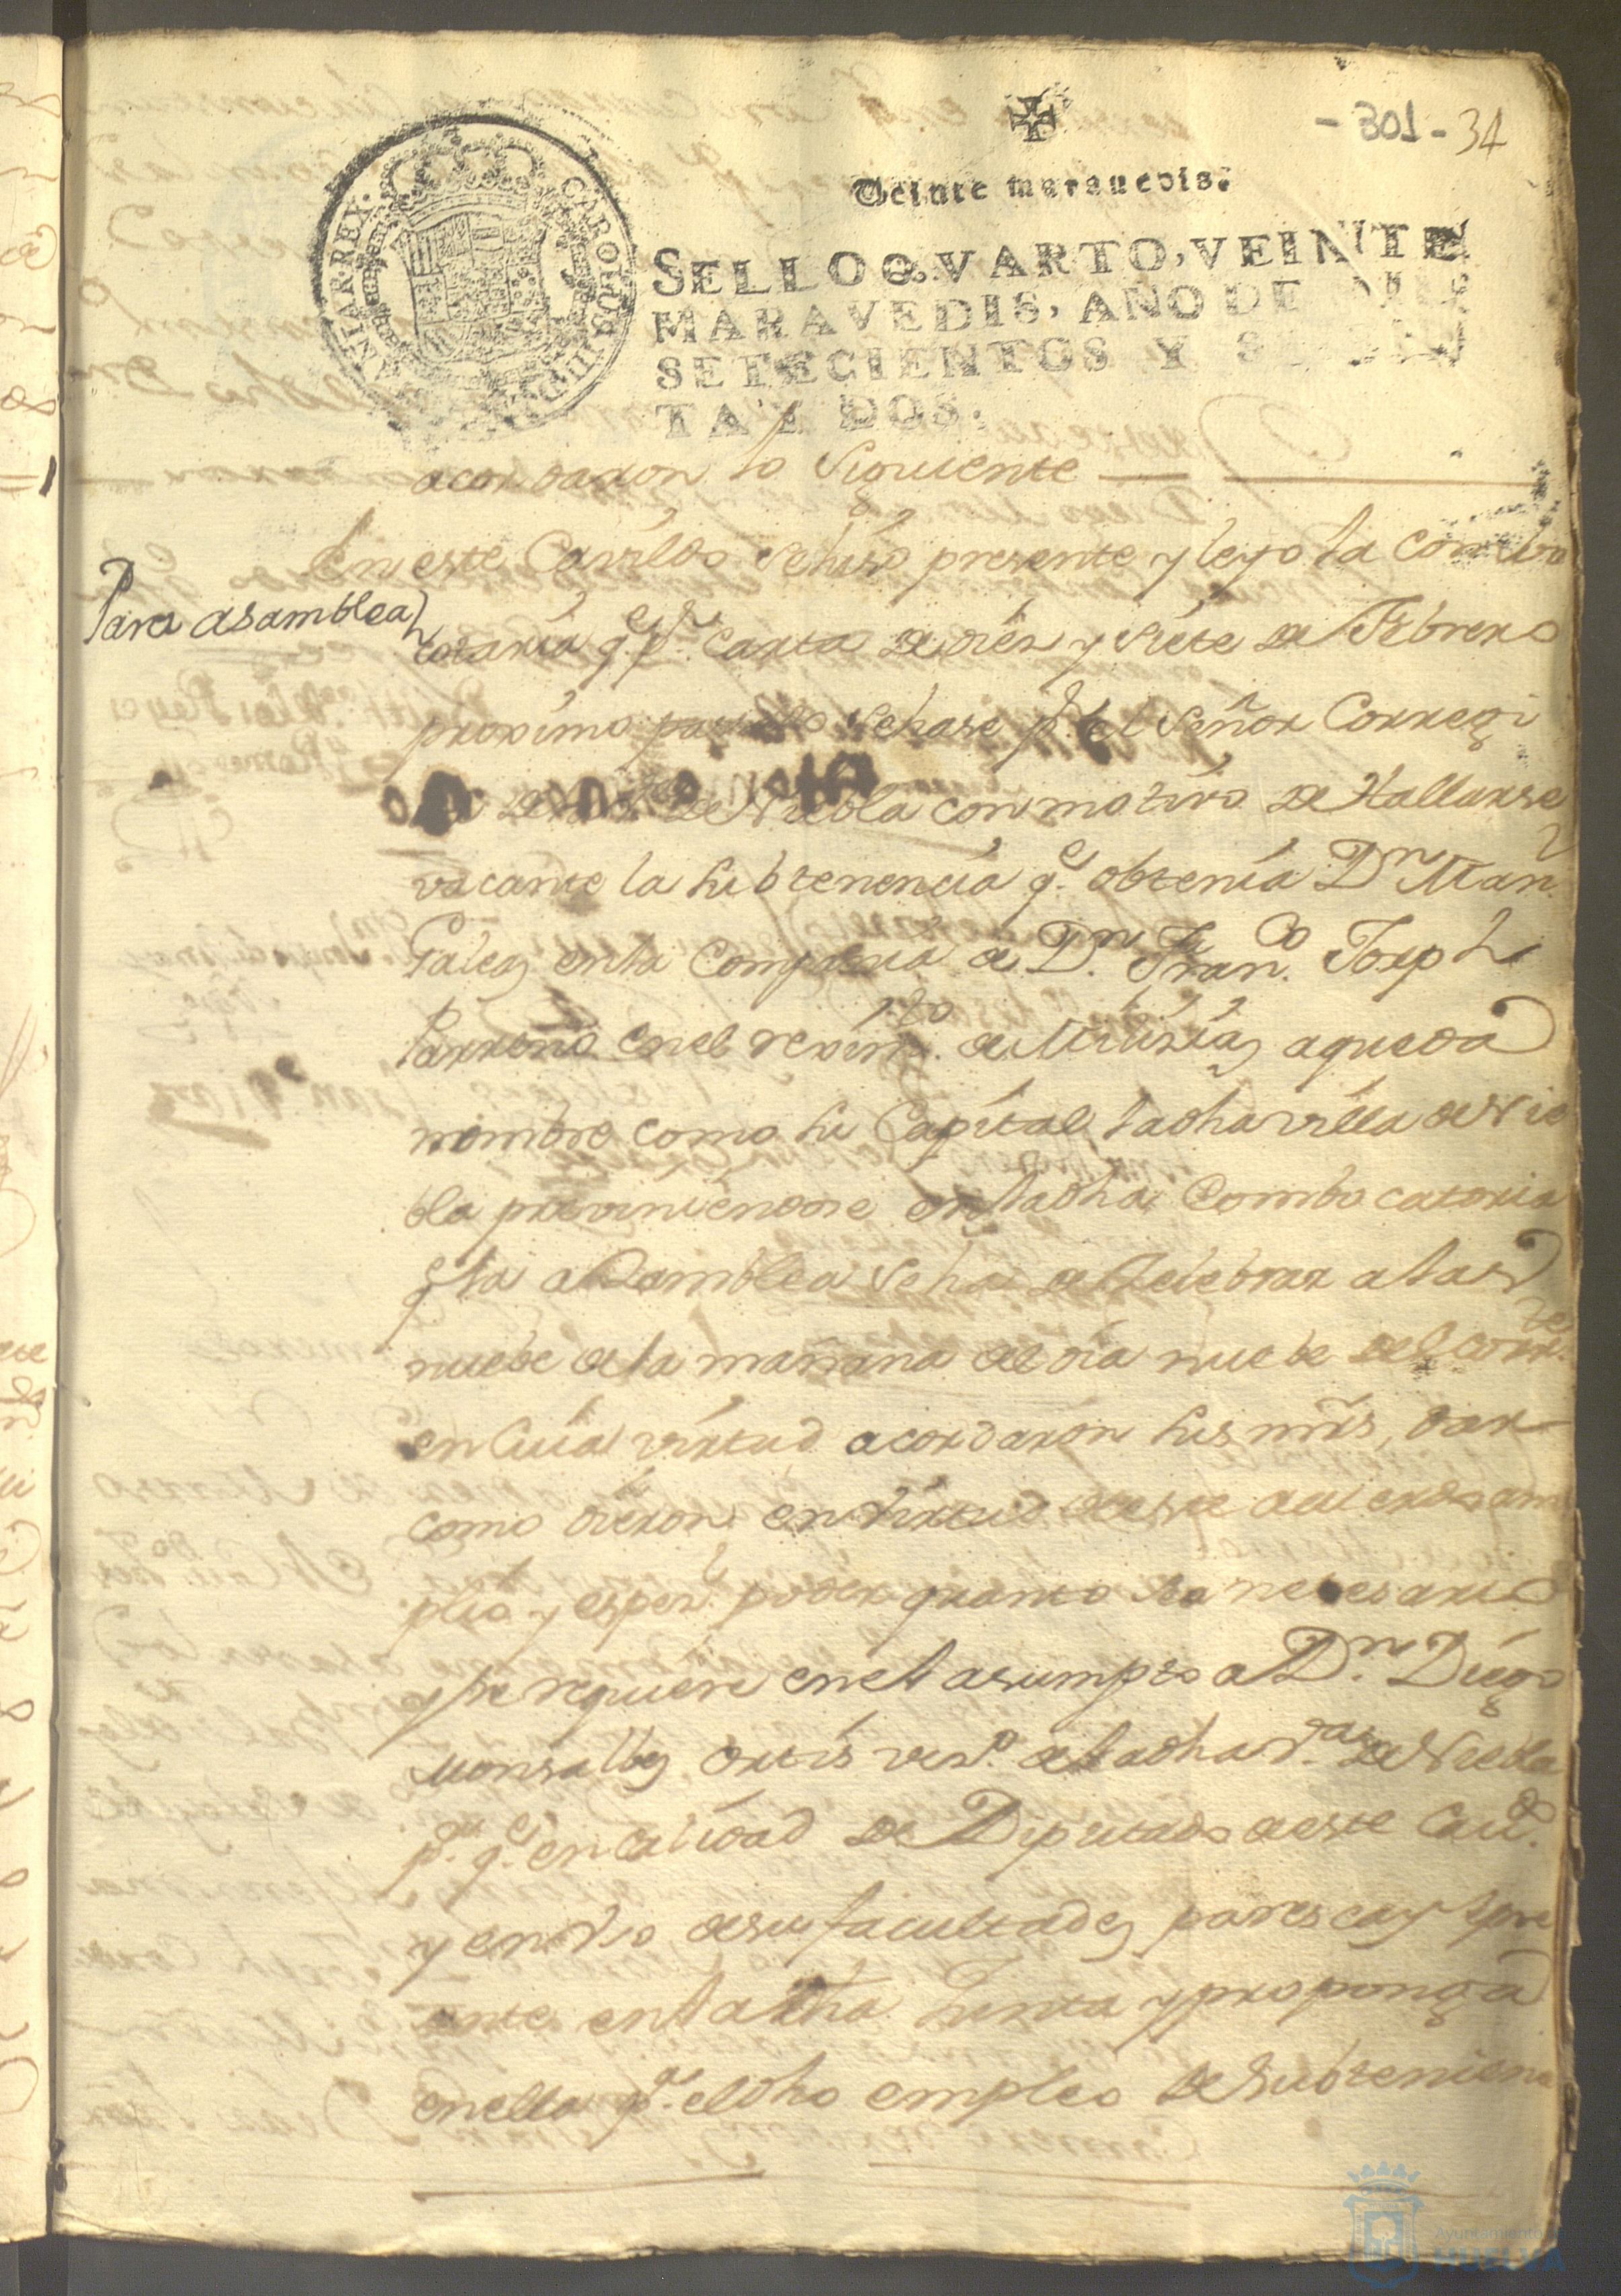 - 301 - 34
Veinte maravedis.
SELLO QVARTO, VEINTE
MARAVEDIS, AÑO DE
SETECIENTOS Y S
TA Y DOS.
CAROLUS III D
HISPANIAR. REX.
acordaron lo siguiente
En este Cavildo se hiso presente y leyo la combo
Para asamblea
catoria q.e p.r carta de dies y siete de Febrero
proximo pasado se hase p.r el señor Corregi
de Niebla con motivo de Hallarse
vacante la subtenencia q.e obtenia D.n Man.l
en la Compañia de D.n Fran.co Joseph
Parreño en el reximto. de Milisias a que da
nombre como su Capital la dha villa de Nie
bla previniendose en la dha Combocatoria
q.e la asamblea se ha de Selebrar a las
nuebe de la mañana del dia nuebe del corr.te
en Cuia virtud acordaron sus mrs, dar
como dieron en virtud de este acuerdo am
plio y espe.l poder quanto sea nesesario
y se requiere en el asumpto a D.n Diego
Monsalbe Ortis ves.o de la dha v.a de Niebla
p.a q.e en calidad de Diputado de este Cav.do
y en vso de sus facultades paresca y se pre
sente en la dha Junta y proponga
en ella p.a el dho empleo de Subtenien
Ayuntamiento
HUELVA